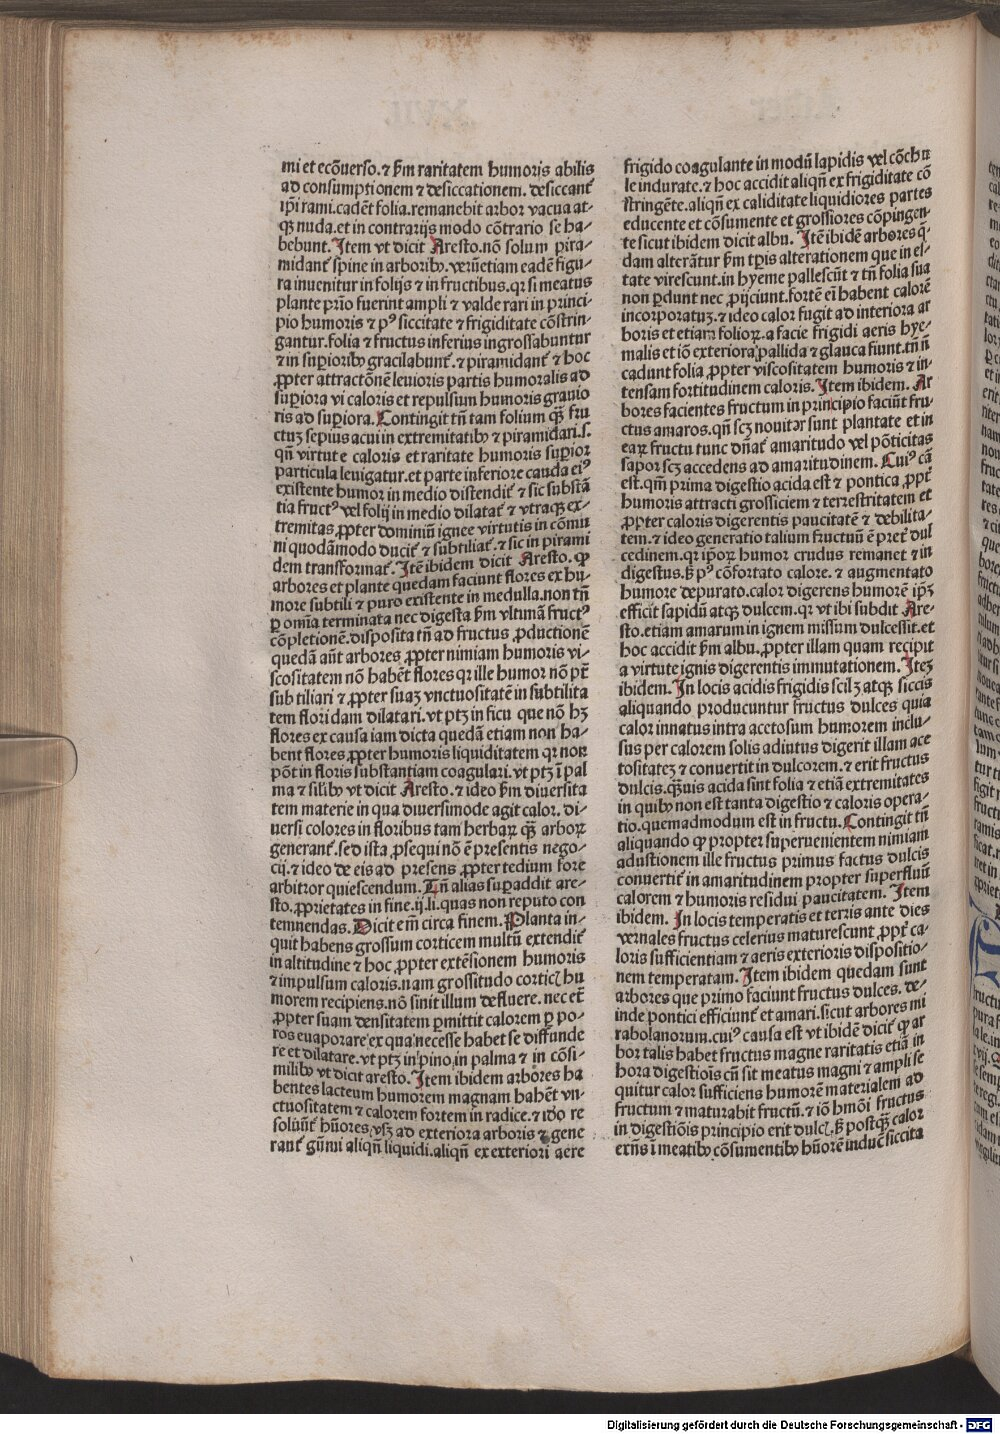 mi et ecõuerso. ⁊ ẜm raritatem humoris abilis
ad consumptionem ⁊ desiccationem. desiccant᷑
ip̃i rami. cadẽt folia. remanebit arbor vacua at-
qꝫ nuda. et in contrarijs modo cõtrario se ha-
bebunt. Item vt dicit Aresto. nõ solum pira-
midant᷑ spine in arboribꝫ. verũetiam eadẽ figu-
ra inuenitur in folijs ⁊ in fructibus. qꝛ si meatus
plante pꝛio fuerint ampli ⁊ valde rari in princi-
pio humoris ⁊ pꝰ siccitate ⁊ frigiditate cõstrin-
gantur. folia ⁊ fructus inferius ingrossabuntur
⁊ in suꝑioribꝫ gracilabunt᷑. ⁊ piramidant᷑ ⁊ hoc
ꝓpter attractõnẽ leuioris partis humoralis ad
suꝑiora vi caloris et repulsum humoris grauio
ris ad suꝑiora. Contingit tñ tam folium qꝫ̃ fru
ctuꝫ sepius acui in extremitatibꝫ ⁊ piramidari. s.
qñ virtute caloris et raritate humoris suꝑior
particula leuigatur. et parte inferiore cauda eiꝰ
existente humor in medio distendit᷑ ⁊ sic substã
tia fructꝰ vel folij in medio dilatat᷑ ⁊ vtraqꝫ ex-
tremitas ꝓpter dominiũ ignee virtutis in cõmu
ni quodãmodo ducit᷑ ⁊ subtiliat᷑. ⁊ sic in pirami
dem transformat᷑. Itẽ ibidem dicit Aresto. ꝙ
arbores et plante quedam faciunt flores ex hu-
more subtili ⁊ puro existente in medulla. non tñ
ꝑ om̃ia terminata nec digesta ẜm vltimã fructꝰ
cõpletionẽ. disposita tñ ad fructus ꝓductionẽ
quedã aũt arbores ꝓpter nimiam humoris vi-
scositatem nõ habẽt flores qꝛ ille humor nõ pt̃
sub tiliari ⁊ ꝓpter suaꝫ vnctuositatẽ in subtilita
tem flori dam dilatari. vt ptꝫ in ficu que nõ hꝫ
flores ex causa iam dicta quedã etiam non ha-
bent flores ꝓpter humoris liquiditatem qꝛ non
põt in floris substantiam coagulari. vt ptꝫ ĩ pal
ma ⁊ silibꝫ vt dicit Aresto. ⁊ ideo ẜm diuersita
tem materie in qua diuersimode agit calor. di-
uersi colores in floribus tam herbaꝝ qꝫ̃ arboꝝ
generant᷑. sed ista ꝓsequi nõ ẽ presentis nego-
cij. ⁊ ideo de eis ad presens ꝓpter tedium fore
arbitror quiescendum. Tñ alias suꝑaddit are-
sto. ꝓprietates in fine. ij. li. quas non reputo con
temnendas. Dicit em̃ circa finem. Planta in-
quit habens grossum corticem multũ extendit᷑
in altitudine ⁊ hoc ꝓpter extẽsionem humoris
⁊ impulsum caloris. nam grossitudo corticꝭ hu
morem recipiens. nõ sinit illum defluere. nec et̃
ꝓpter suam densitatem ꝑmittit calorem ꝑ po-
ros euaporare ex qua necesse habet se diffunde
re et dilatare. vt ptꝫ in pino in palma ⁊ in cõsi-
milibꝫ vt dicit aresto. Item ibidem arbores ha
bentes lacteum humorem magnam habẽt vn-
ctuositatem ⁊ calorem fortem in radice. ⁊ iõo re
soluũt᷑ hũores. vsꝫ ad exteriora arboris ⁊ gene
rant᷑ gũmi aliqñ liquidi. aliqñ ex exteriori aere
frigido coagulante in modũ lapidis vel cõchu
le indurate. ⁊ hoc accidit aliqñ ex frigiditate cõ
stringẽte. aliqñ ex caliditate liquidiores partes
educente et cõsumente et grossiores cõpingen-
te sicut ibidem dicit albu. Itẽ ibidẽ arbores q̃-
dam alterãtur ẜm tꝑis alterationem que in es-
tate virescunt. in hyeme pallescũt ⁊ tñ folia sua
non ꝑdunt nec ꝓijciunt. fortẽ ei᷑ habent calorẽ
incorporatuꝫ. ⁊ ideo calor fugit ad interiora ar
boris et etiam folioꝝ. a facie frigidi aeris hye-
malis et iõ exteriora pallida ⁊ glauca fiunt. tñ ñ
cadunt folia ꝓpter viscositatem humoris ⁊ in-
tensam fortitudinem caloris. Item ibidem. Ar
bores facientes fructum in principio faciũt fru-
ctus amaros. qñ scꝫ nouiter sunt plantate et in
eaꝝ fructu tunc dñat᷑ amaritudo vel põticitas
sapor scꝫ accedens ad amaritudinem. Cuiꝰ cã
est. qm̃ prima digestio acida est ⁊ pontica ꝓpt᷑
humoris attracti grossiciem ⁊ terrestritatem et
ꝓpter caloris digerentis paucitatẽ ⁊ debilita-
tem. ⁊ ideo generatio talium fructuũ ẽ pret᷑ dul
cedinem. qꝛ ip̃oꝝ humor crudus remanet ⁊ in
digestus. ß pꝰ cõfortato calore. ⁊ augmentato
humore depurato. calor digerens humorẽ ip̃ꝫ
efficit sapidũ atqꝫ dulcem. qꝛ vt ibi subdit Are-
sto. etiam amarum in ignem missum dulcessit. et
hoc accidit ẜm albu. ꝓpter illam quam recipit
a virtute ignis digerentis immutationem. Iteꝫ
ibidem. In locis acidis frigidis scilꝫ atqꝫ siccis
aliquando producuntur fructus dulces quia
calor innatus intra acetosum humorem inclu-
sus per calorem solis adiutus digerit illam ace
tositateꝫ ⁊ conuertit in dulcorem. ⁊ erit fructus
dulcis. qꝫ̃uis acida sint folia ⁊ etiã extremitates
in quibꝫ non est tanta digestio ⁊ caloris opera-
tio. quemadmodum est in fructu. Contingit tñ
aliquando ꝙ propter superuenientem nimiam
adustionem ille fructus primus factus dulcis
conuertit᷑ in amaritudinem propter superfluũ
calorem ⁊ humoris residui paucitatem. Item
ibidem. In locis temperatis et terris ante dies
vernales fructus celerius maturescunt ꝓpt᷑ ca-
loris sufficientiam ⁊ aeris exterioris dispositio-
nem temperatam. Item ibidem quedam sunt
arbores que primo faciunt fructus dulces. de-
inde pontici efficiunt᷑ et amari. sicut arbores mi
rabolanorum. cuiꝰ causa est vt ibidẽ dicit᷑ ꝙ ar
bor talis habet fructus magne raritatis etiã in
hora digestiõis cũ sit meatus magni ⁊ ampli se
quitur calor sufficiens humorẽ materialem ad
fructum ⁊ maturabit fructũ. ⁊ iõ hmõi fructus
in digestiõis principio erit dulcꝭ. ß postqꝫ̃ calor
exñs ĩ meatibꝫ cõsumentibꝫ hũorẽ inducẽ siccita